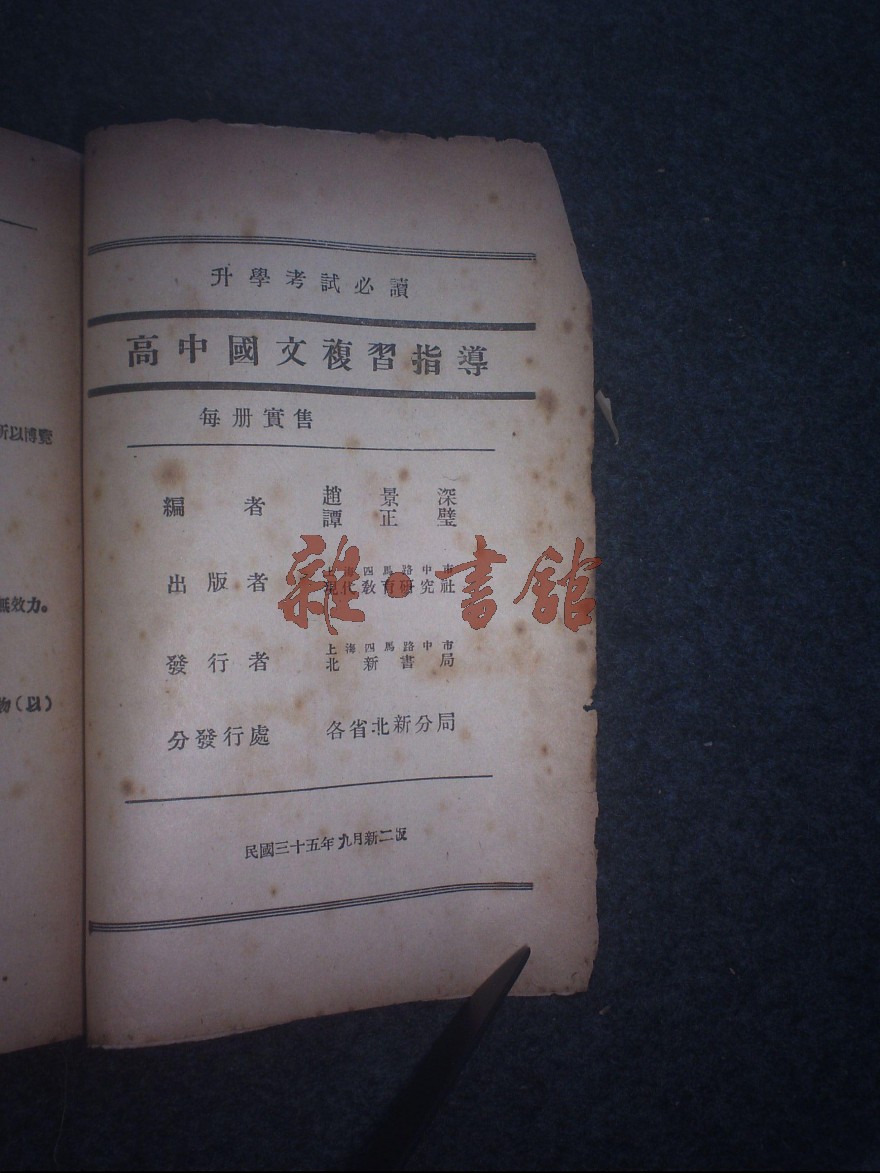 升學考試必讀
高中國文複習指導
每册實售
編者 趙景深
譚正璧
出版者 上海四馬路中市
現代教育研究社
發行者 上海四馬路中市
北新書局
分發行處 各省北新分局
民國三十五年九月新二版
所以博覽
無效力。
物（以）
雜·書館